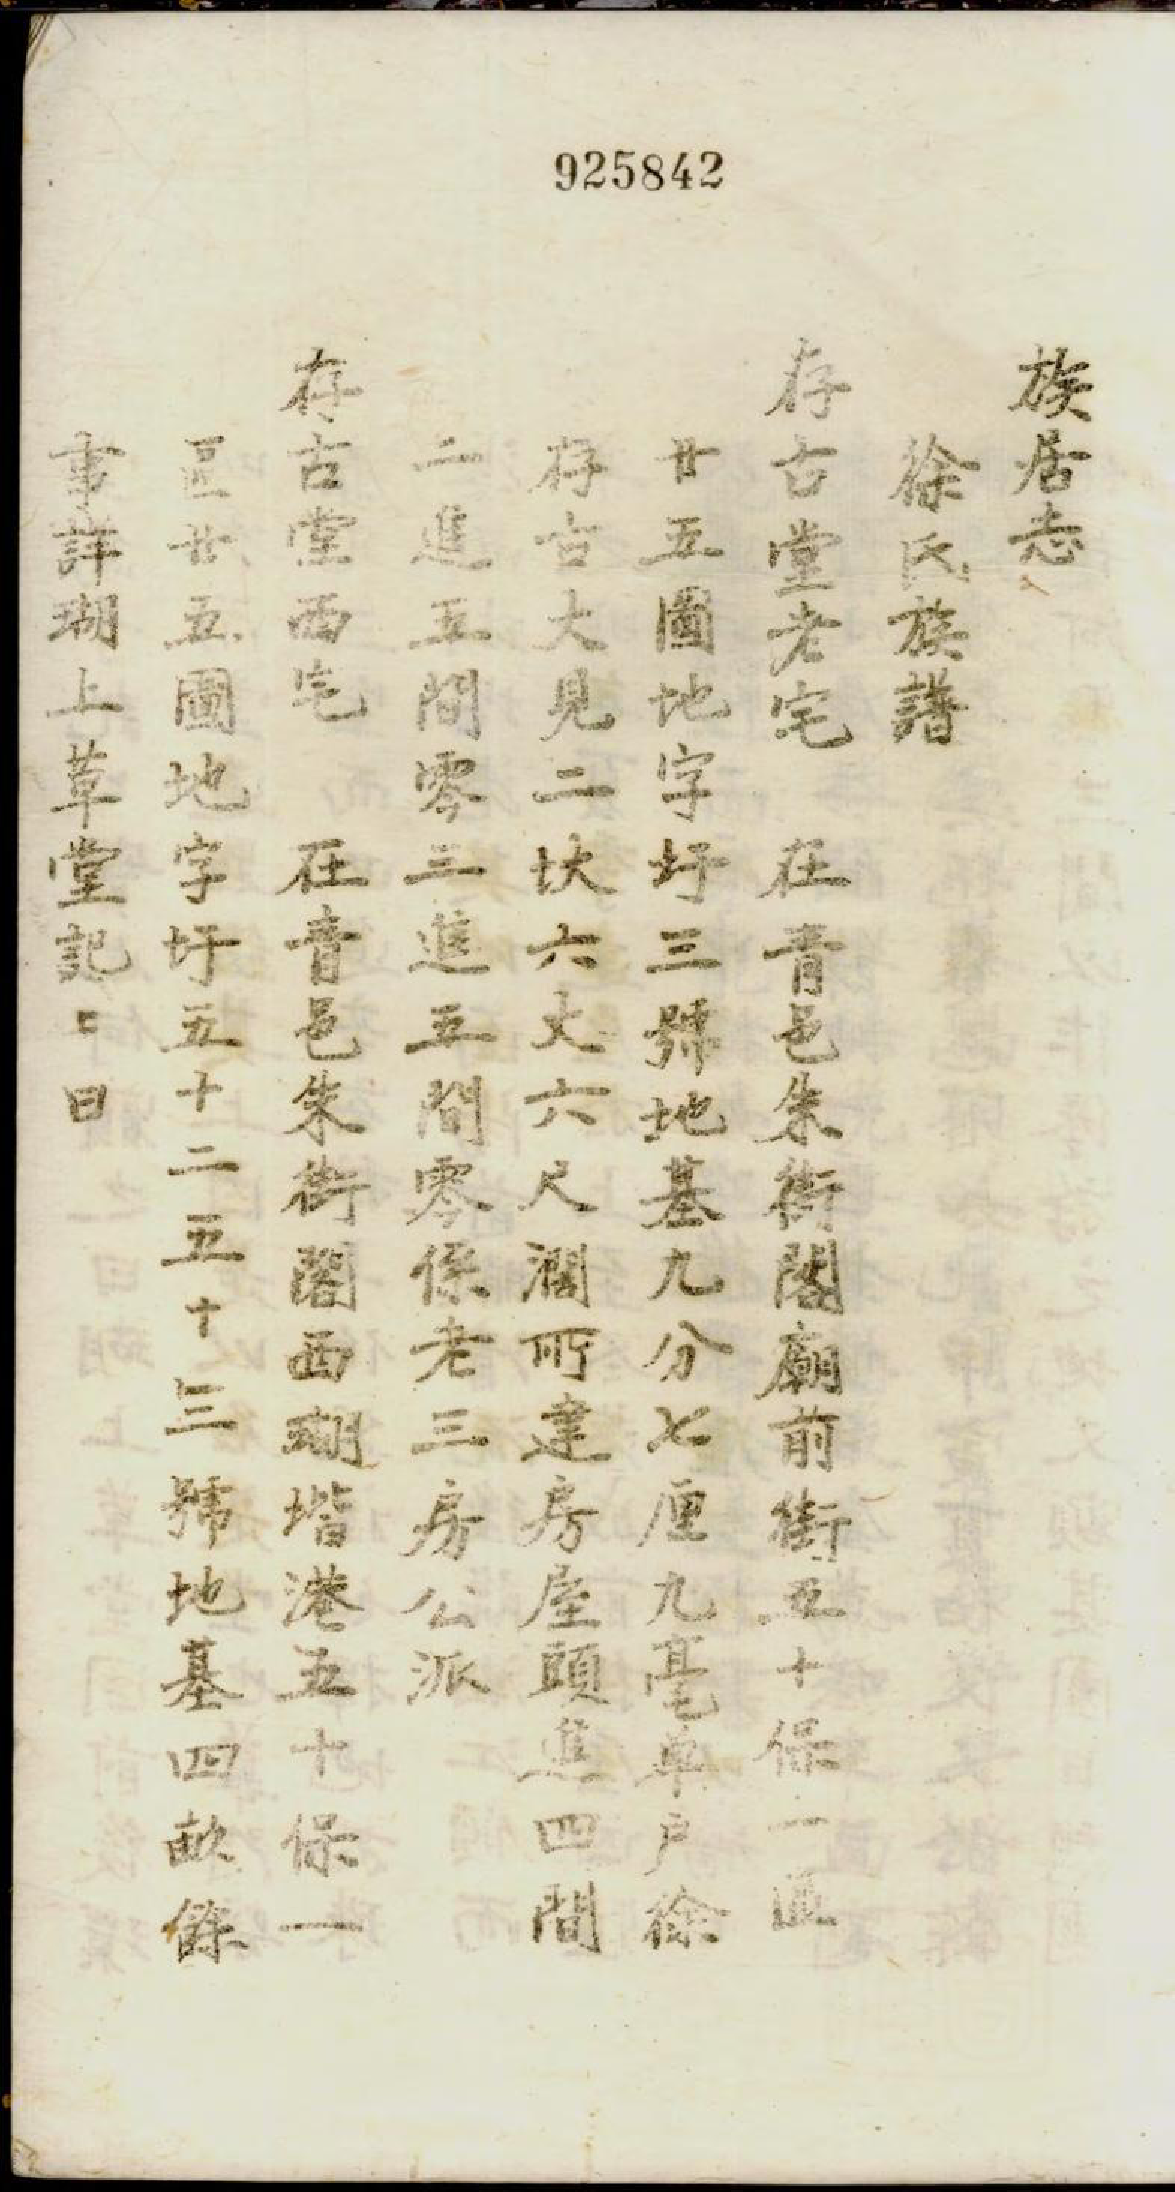 925842
族居志
徐氏族譜
存古堂老宅　在青邑朱街閣廟前街五十保一區
廿五圖地字圩三號地基九分七厘九毫單户徐
存古大見二伏六丈六尺濶所建房屋頭進四間
二進五間零三進五間零係老三房公派
存古堂西宅　在青邑朱街閣西瑚堦港五十保一
區廿五圖地字圩五十二五十三號地基四畝餘
事詳瑚上草堂記〻曰